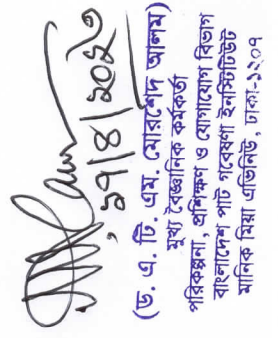 ১৭|৪|২০২৩
(ড. এ. টি. এম. মোরশেদ আলম)
মুখ্য বৈজ্ঞানিক কর্মকর্তা
পরিকল্পনা, প্রশিক্ষণ ও যোগাযোগ বিভাগ
বাংলাদেশ পাট গবেষণা ইনস্টিটিউট
মানিক মিয়া এভিনিউ, ঢাকা-১২০৭